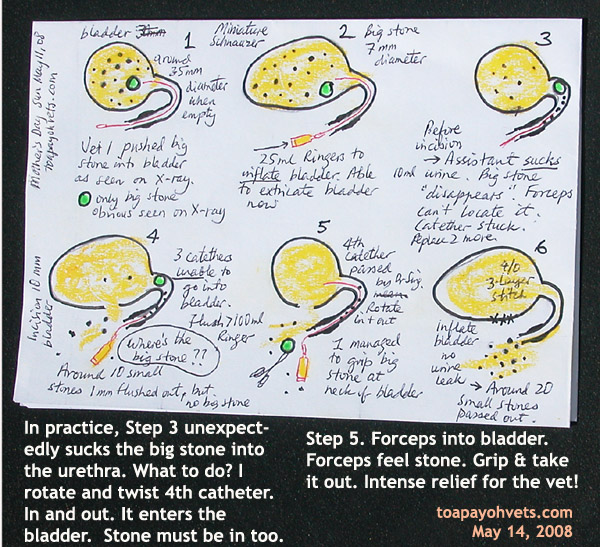 Mother's Day Sun May 11 08
toapayohvets.com
bladder
1
around
35mm
diameter
when
empty
Vet 1 pushed big
stone into bladder
as seen on X-ray.
only big stone
obvious seen on X-ray
Miniature
Schnauzer
2
Big stone
7mm
diameter
25ml Ringers to
inflate bladder. Able
to extricate bladder
now
3
Before
incision
→ Assistant sucks
10ml urine. Big stone
"disappears". Forceps
can't locate it.
Catheter stuck.
Replace 2 more.
4
Incision 10 mm
bladder
3 catheters
unable to
go into
bladder.
flush >100ml
Ringer
Where's the
big stone ??
Around 10 small
stones 1mm flushed out, but
no big stone
5
4th
catheter
passed
by Dr Sing.
Rotate
in & out
I managed
to grip big
stone at
neck of bladder
6
4/0
3-layer
stitch
Inflate
bladder
no
urine
leak
→ Around 20
small stones
passed out.
In practice, Step 3 unexpect-
edly sucks the big stone into
the urethra. What to do? I
rotate and twist 4th catheter.
In and out. It enters the
bladder. Stone must be in too.
Step 5. Forceps into bladder.
Forceps feel stone. Grip & take
it out. Intense relief for the vet!
toapayohvets.com
May 14, 2008